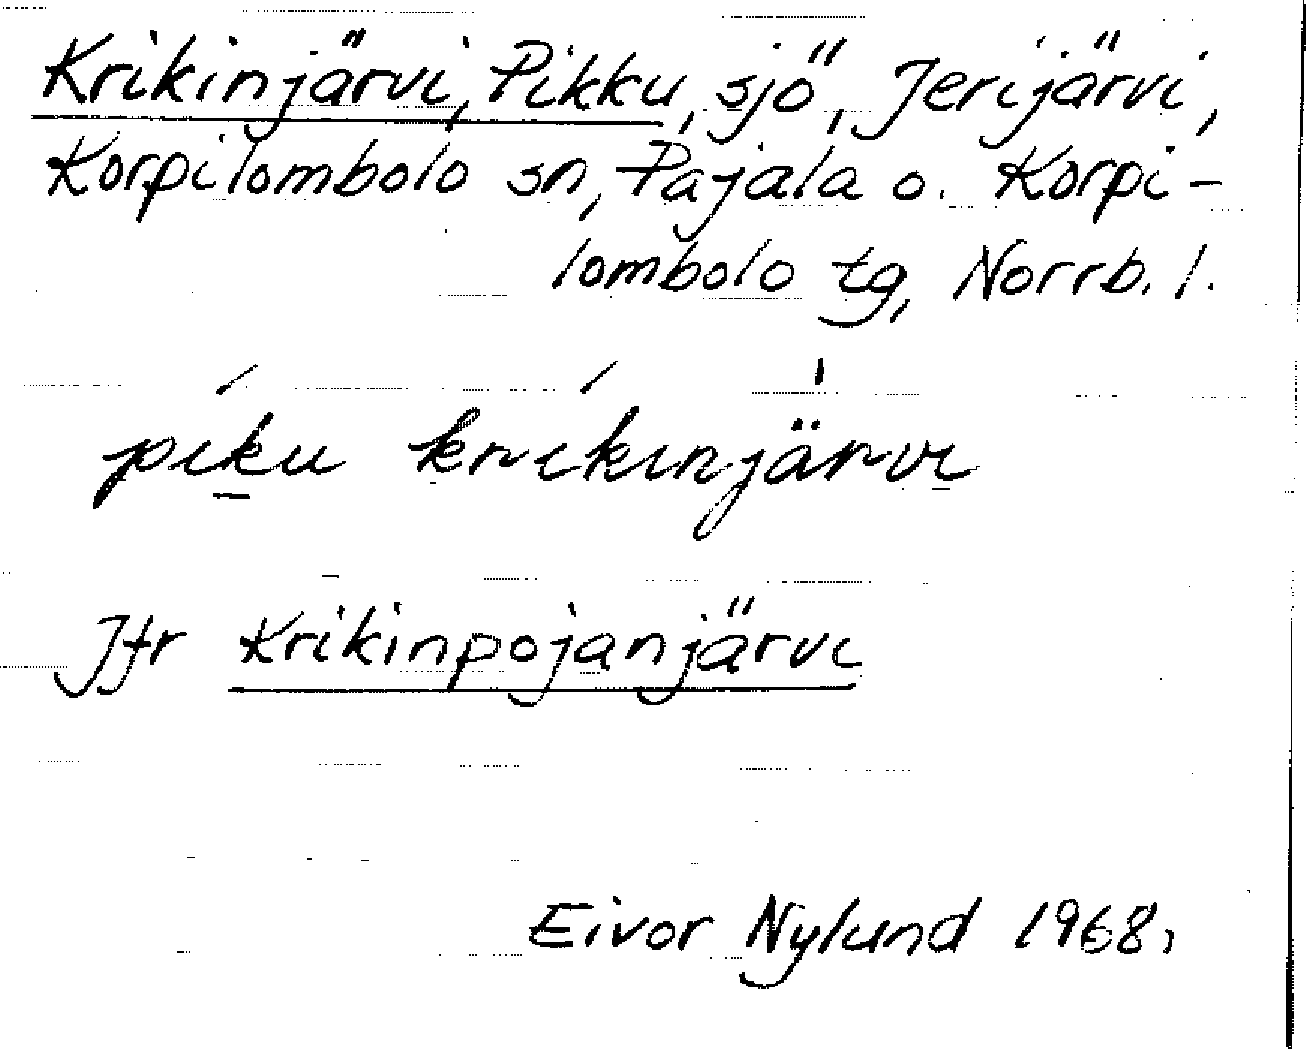 Krikinjärvi, Pikku, sjö, Jerijärvi,
Korpilombolo sn, Pajala o. Korpi-
lombolo tg, Norrb. l.
piku krikinjärvi
Jfr Krikinpojanjärvi
Eivor Nylund 1968.